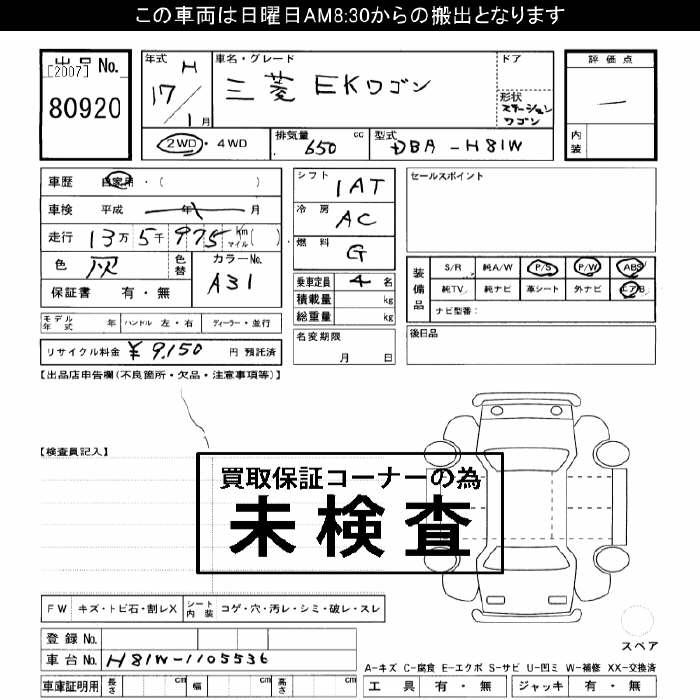 この車両は日曜日AM8:30からの搬出となります
出品 No.
[2007]
80920
年式 H 17/1月
車名・グレード 三菱 EKワゴン
ドア
形状 ステーションワゴン
2WD・4WD
排気量 650 cc
型式 DBA-H81W
評価点
―
内装
車歴 自家用・( )
車検 平成 年 月
走行 13万5千975 km マイル( )
色 灰
色替
カラーNo. A31
保証書 有・無
モデル年式 年 ハンドル 左・右 ディーラー・並行
リサイクル料金 ¥9,150 円 預託済
シフト 1AT
冷房 AC
燃料 G
乗車定員 4 名
積載量 kg
総重量 kg
名変期限
月 日
セールスポイント
装備品
S/R 純A/W P/S P/W ABS
純TV 純ナビ 革シート 外ナビ エアB
ナビ型番:
後日品
【出品店申告欄(不良箇所・欠品・注意事項等)】
【検査員記入】
買取保証コーナーの為
未検査
FW キズ・トビ石・割レX シート内装 コゲ・穴・汚レ・シミ・破レ・スレ
登録 No.
車台 No. H81W-1105536
車庫証明用 長さ cm 幅 cm 高さ cm
スペア
A-キズ C-腐食 E-エクボ S-サビ U-凹ミ W-補修 XX-交換済
工具 有・無 ジャッキ 有・無